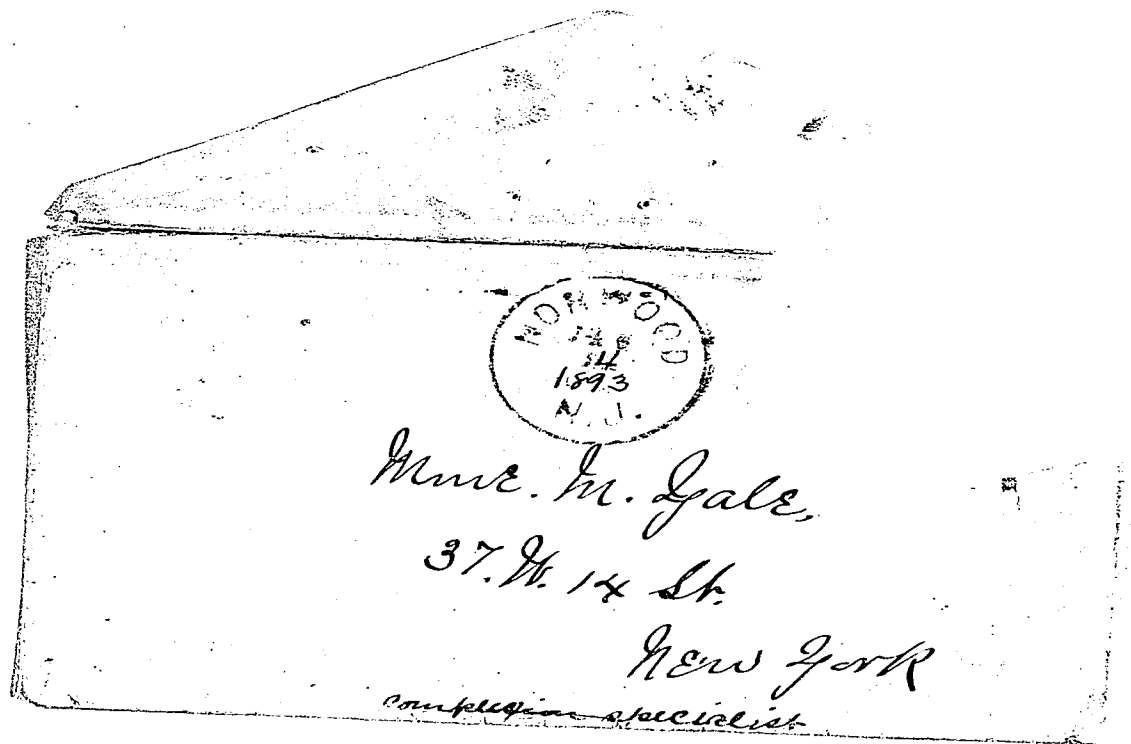 NORWOOD
14
1893
N.J.
Mme. M. Yale,
37. W. 14 St.
New York
complexion specialist